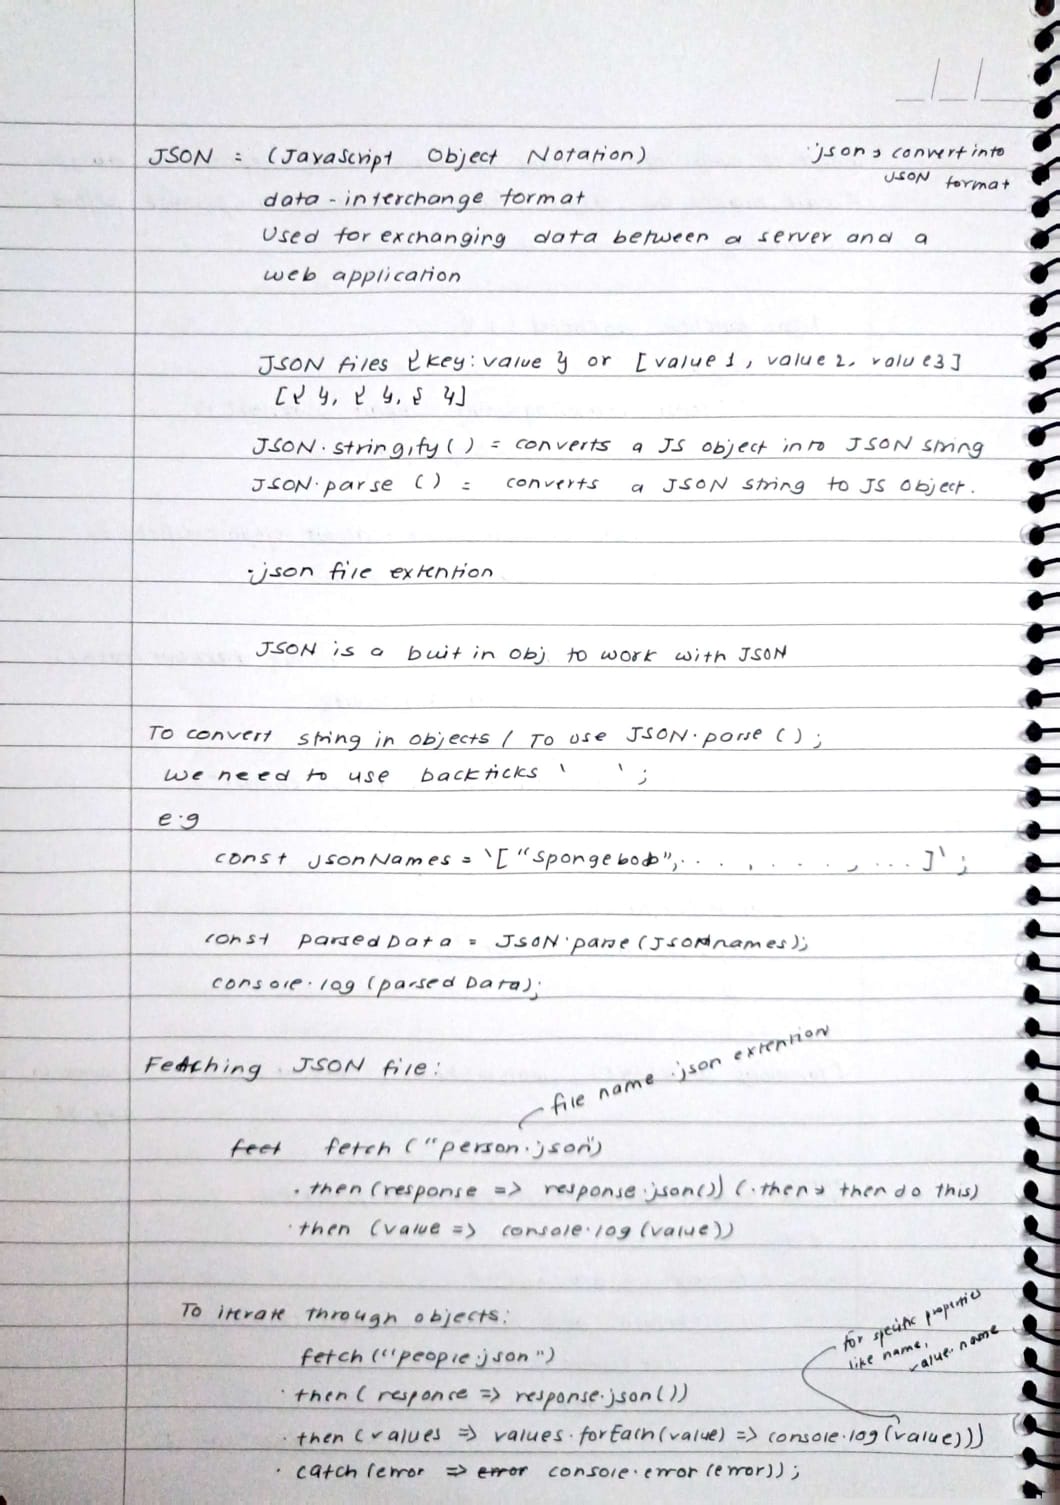 JSON = (JavaScript Object Notation)
.json → convert into
JSON format
data - interchange format
Used for exchanging data between a server and a
web application
JSON files {key: value} or [value1, value2, value3]
[{ }, { }, { }]
JSON.stringify() = converts a JS object into JSON string
JSON.parse () = converts a JSON string to JS object.
.json file extention
JSON is a buit in obj to work with JSON
To convert string in objects / To use JSON.parse();
we need to use backticks ` `;
e.g
const jsonNames = `["Spongebob",. . . , . . . . , ...]`;
const parsedData = JSON.parse(JsonNnames);
console.log (parsed Data);
Fetching JSON file:
file name .json extention
feet fetch ("person.json")
.then (response => response.json()) (.then → then do this)
.then (value => console.log (value))
To iterate through objects:
for specific properties
like name,
value.name
fetch ("people.json")
.then ( responce => response.json())
.then (values => values.forEach(value) => console.log(value)))
.catch (error => error console.error (error));